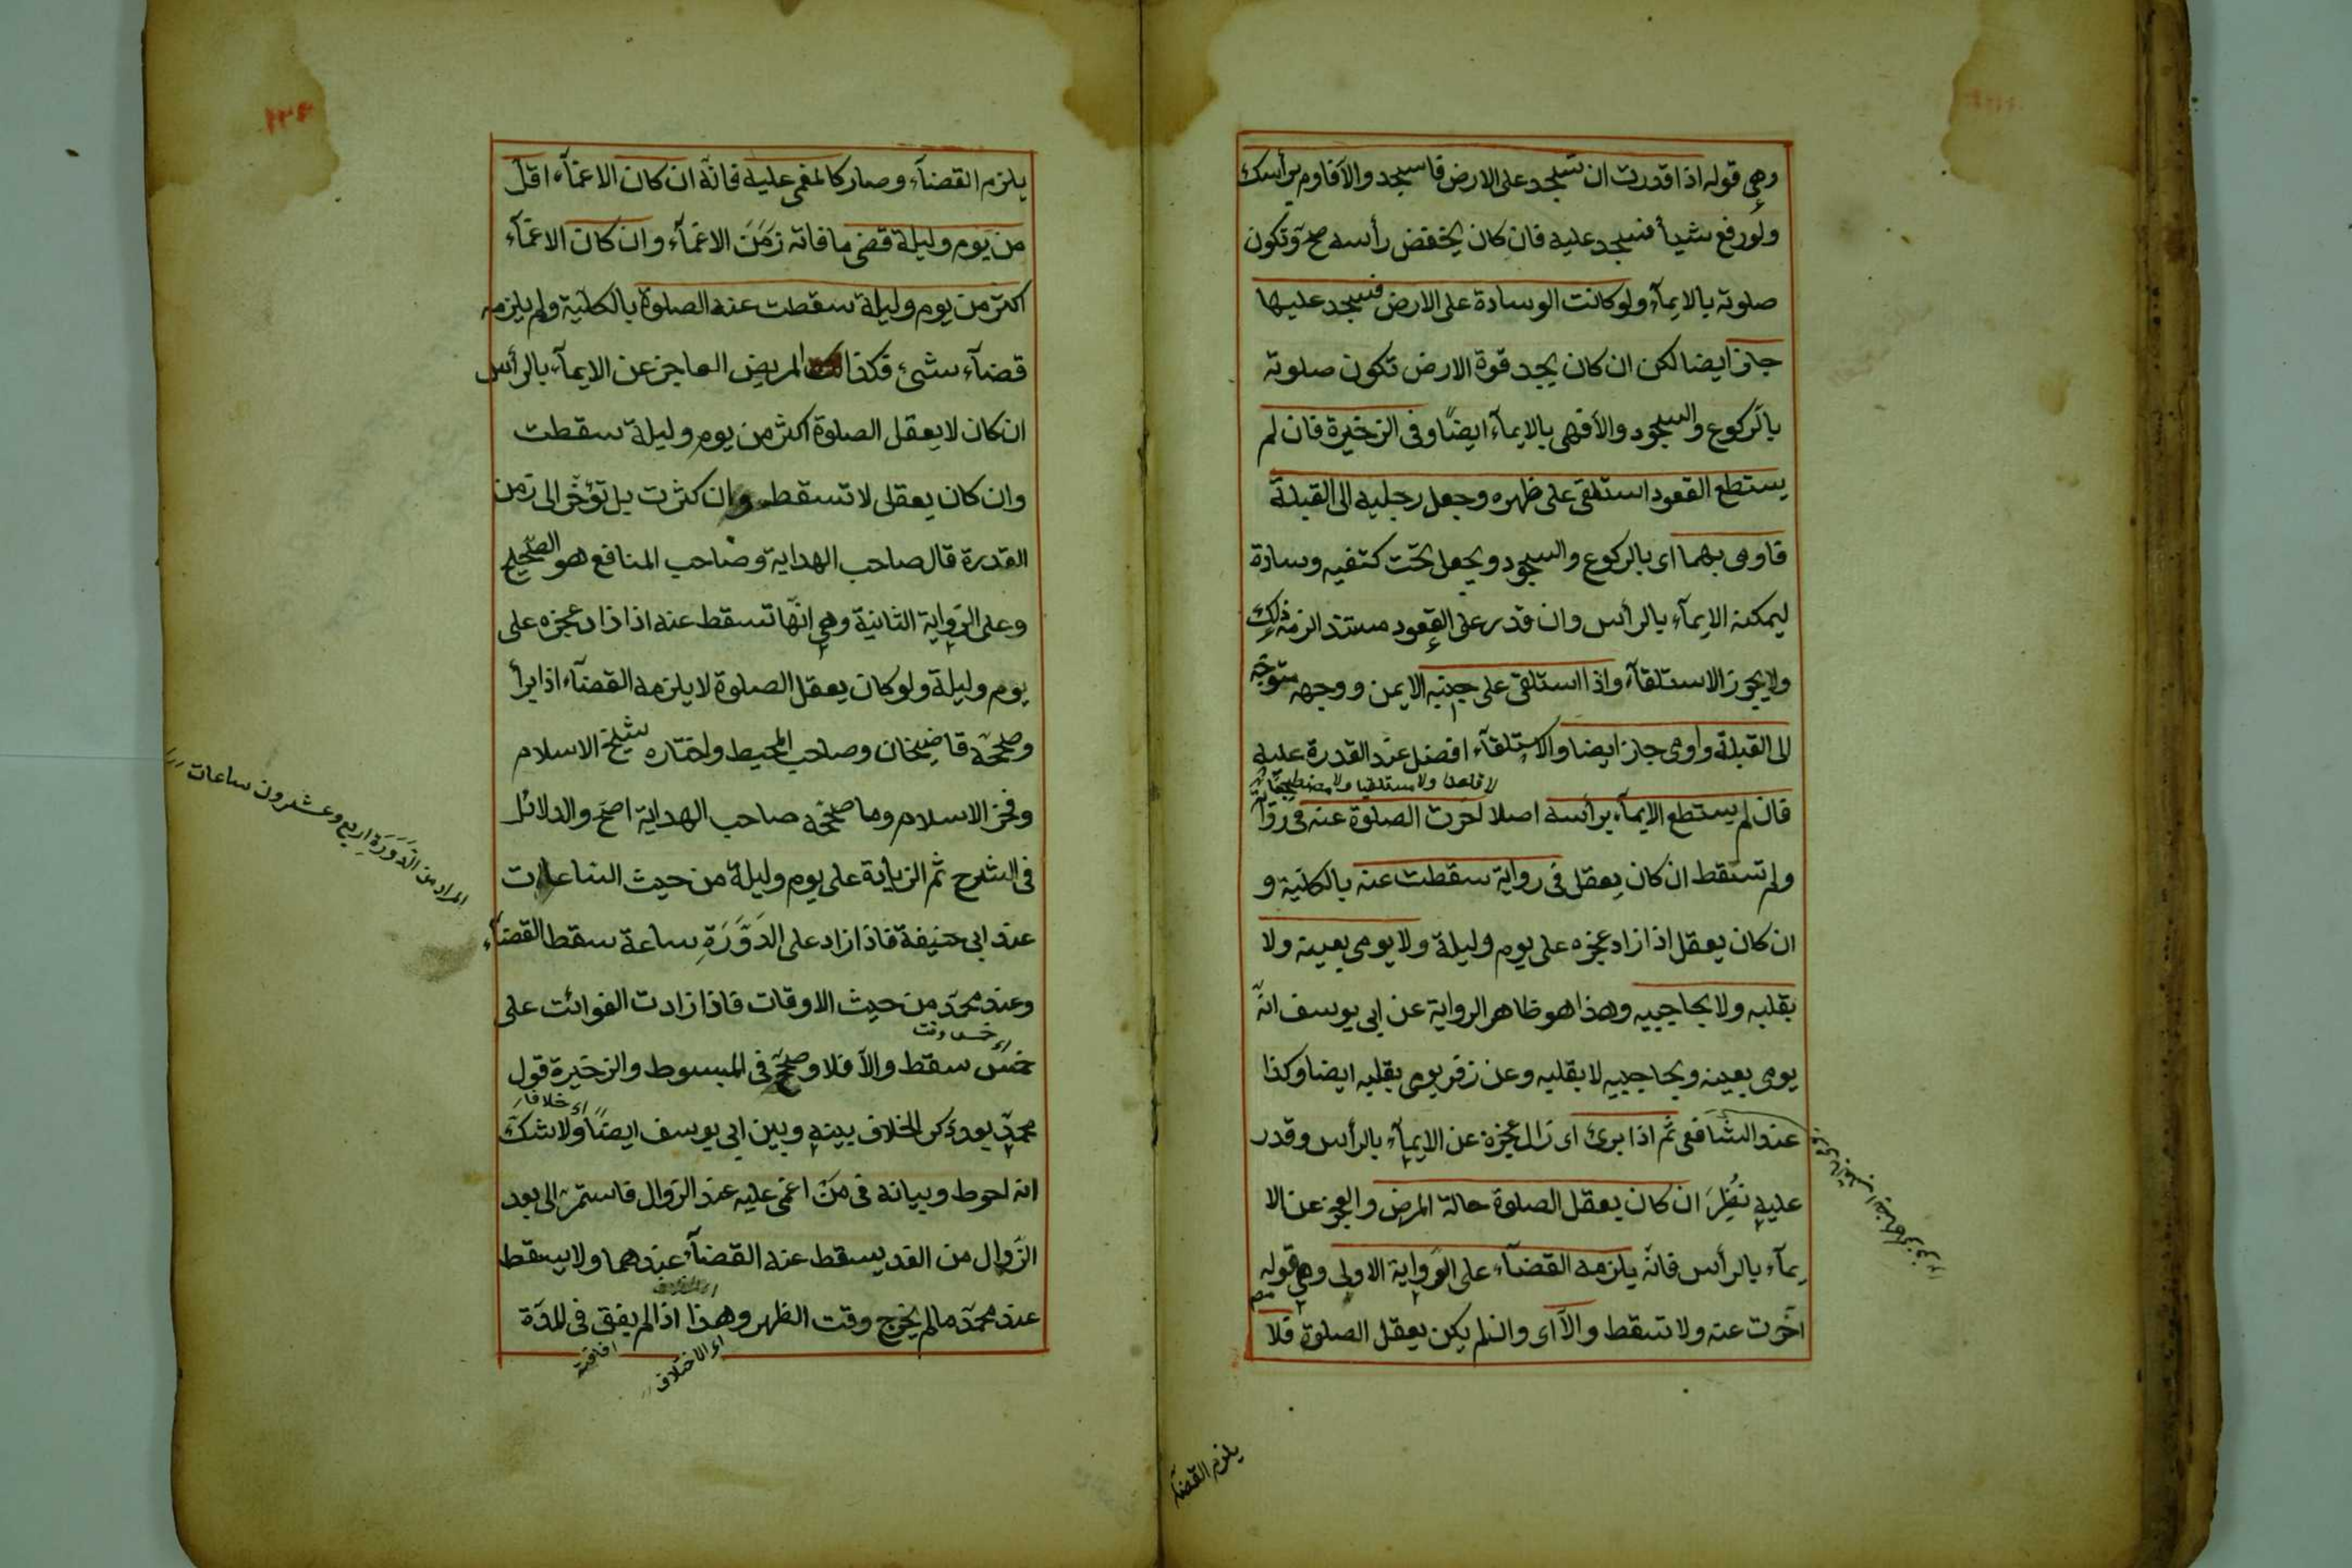 وهى قوله اذا قدرت ان تسجد على الارض فاسجد والا فاوم برأسك
ولو رفع شيأ فسجد عليه فان كان يخفض رأسه صح وتكون
صلوته بالايمآء ولو كانت الوسادة على الارض فسجد عليها
جاز ايضا لكن ان كان يجد قوة الارض تكون صلوته
بالركوع والسجود والا فهى بالايمآء ايضًا وفى الزخيرة فان لم
يستطع القعود استلقى على ظهره وجعل رجليه الى القبلة
فاومى بهما اى بالركوع والسجود ويجعل تحت كتفيه وسادة
ليمكنه الايمآء بالرأس وان قدر على القعود مستندا لزمه ذلك
ولا يجوز الاستلقآء واذا استلقى على جنبه الايمن ووجهه متوجّه
الى القبلة واومى جاز ايضا والاستلقآء افضل عند القدرة عليه
لا قاعدا ولا مستلقيا ولا مضطجعا
فان لم يستطع الايمآء برأسه اصلا اخرت الصلوة عنه فى رواية
ولم تسقط ان كان يعقل فى رواية سقطت عنه بالكليّة و
ان كان يعقل اذا زاد عجزه على يوم وليلة ولا يومى بعينه ولا
بقلبه ولا بحاجبيه وهذا هو ظاهر الرواية عن ابى يوسف انّه
يومى بعينه وبحاجبيه لا بقلبه وعن زفر يومى بقلبه ايضا وكذا
عند الشافعى ثمّ اذا برئ اى زال عجزه عن الايمآء بالرأس وقدر
عليه نُظِرَ ان كان يعقل الصلوة حالة المرض والعجز عن الا
يمآء بالرأس فانّه يلزمه القضآء على الرّواية الاولى وهى قوله
اخّرت عنه ولا تسقط والاّ اى وان لم يكن يعقل الصلوة فلا
يلزم القضآء
يلزم القضآء وصار كالمغمى عليه فانّه ان كان الاغمآء اقل
من يوم وليلة قضى ما فاته زَمَنَ الاغمآء وان كان الاغمآء
اكثر من يوم وليلة سقطت عنه الصلوة بالكليّة ولم يلزمه
قضآء شىء فكذالك المريض العاجز عن الايمآء بالرأس
ان كان لا يعقل الصلوة اكثر من يوم وليلة سقطت
وان كان يعقل لا تسقط وان كثرت بل تؤخّر الى زمن
القدرة قال صاحب الهداية وصاحب المنافع هو الصّحيح
وعلى الرّواية الثانية وهى انّها تسقط عنه اذا زاد عجزه على
يوم وليلة ولو كان يعقل الصلوة لا يلزمه القضآء اذا برأ
وصحّحه قاضيخان وصاحب المحيط واختاره شيخ الاسلام
وفخر الاسلام وما صحّحه صاحب الهداية اصحّ والدلائل
فى الشرح ثم الزيادة على يوم وليلة من حيث الساعات
عند ابى حنيفة فاذا زاد على الدَوَّرَةِ ساعة سقط القضآء
المراد من الدَوَرَةِ اربع وعشرون ساعات
وعند محمّد من حيث الاوقات فاذا زادت الفوائت على
اى خمس وقت
خمس سقط والاّ فلا وصحّح فى المبسوط والزخيرة قول
اى خلافا
محمّد يوذكر الخلاف بينه وبين ابى يوسف ايضًا ولا شكّ
انه احوط وبيانه فى مَنْ اغمى عليه عند الزوال فاستمر الى بعد
الزّوال من الغد يسقط عنه القضآء عندهما ولا يسقط
عند محمّد ما لم يخرج وقت الظهر وهذا اذا لم يفق فى المدّة
اى الاختلاف
افاقته